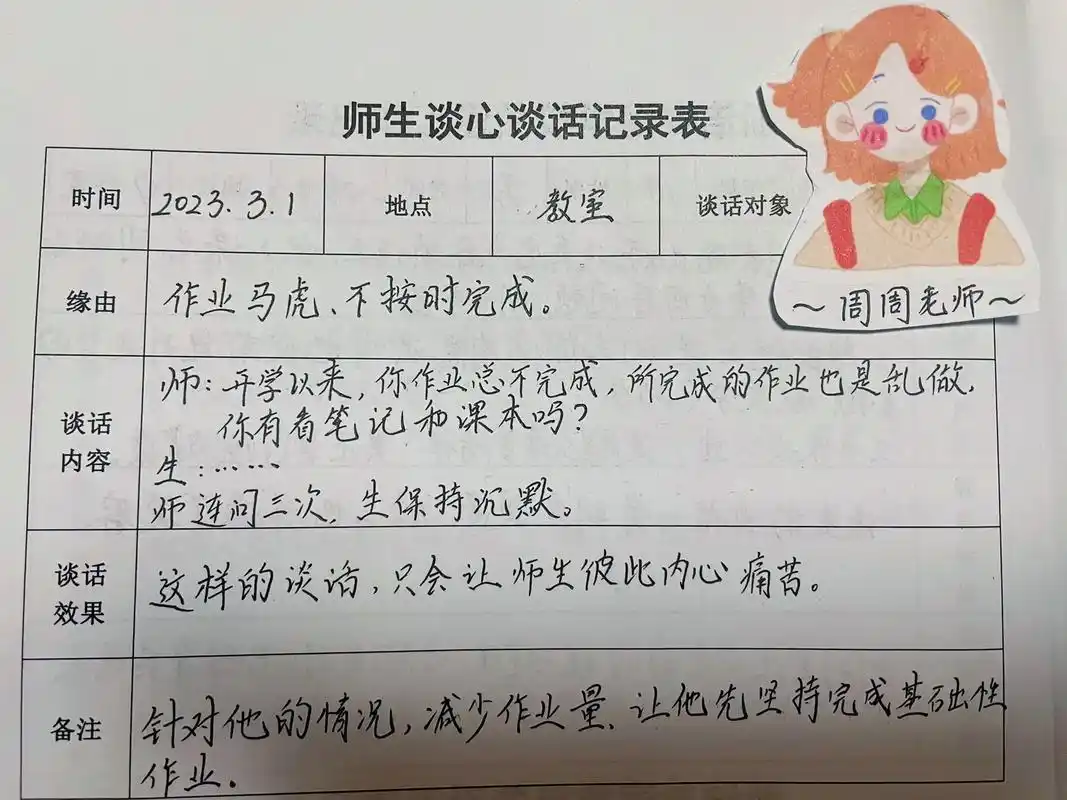 师生谈心谈话记录表
时间 2023.3.1 地点 教室 谈话对象
～周周老师～
缘由 作业马虎、不按时完成。
谈话内容 师：开学以来，你作业总不完成，所完成的作业也是乱做.
你有看笔记和课本吗？
生：……
师连问三次，生保持沉默。
谈话效果 这样的谈话，只会让师生彼此内心痛苦。
备注 针对他的情况，减少作业量、让他先坚持完成基础性
作业。